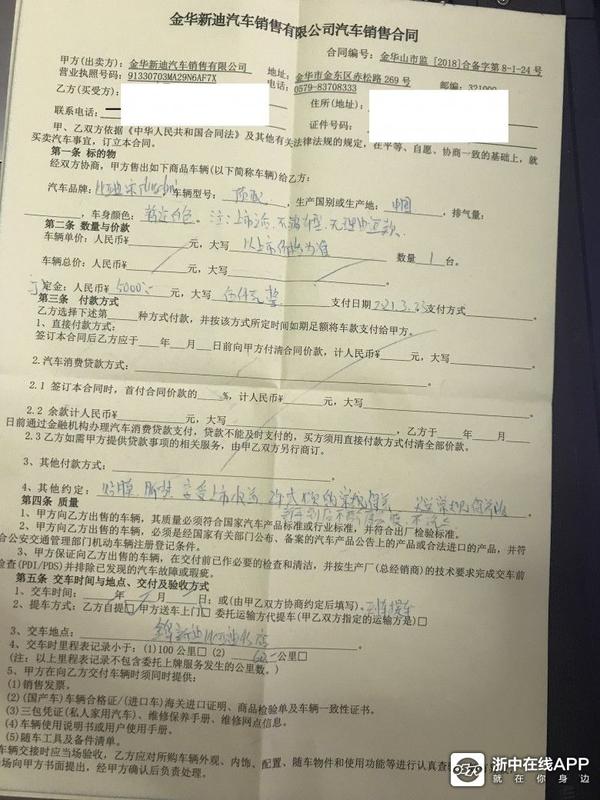 金华新迪汽车销售有限公司汽车销售合同
合同编号：金华山市监 [2018]合备字第 8-1-24 号
甲方(出卖方)：金华新迪汽车销售有限公司
地址：金华市金东区赤松路 269 号
营业执照号码：91330703MA29N6AF7X
电话：0579-83708333
邮编：321000
乙方(买受方)：
住所(地址)：
联系电话：
证件号码：
甲、乙双方依据《中华人民共和国合同法》及其他有关法律法规的规定，在平等、自愿、协商一致的基础上，就
买卖汽车事宜，订立本合同。
第一条 标的物
经双方协商，甲方售出如下商品车辆(以下简称车辆)给乙方：
汽车品牌：，车辆型号：顶配，生产国别或生产地：中国，排气量：
，车身颜色：白色。注：上市后不满意，无理由退款。
第二条 数量与价款
车辆单价：人民币¥ 元，大写 以上市价格为准 数量 1 台。
车辆总价：人民币¥ 元，大写 。
定金：人民币¥ 5000 元，大写 伍仟元整 支付日期 2021.3.23 支付方式
第三条 付款方式
乙方选择下述第 种方式付款，并按该方式所定时间如期足额将车款支付给甲方。
1. 直接付款方式：
签订本合同后乙方应于 年 月 日前向甲方付清合同价款，计人民币¥ 元，大写 。
2.汽车消费贷款方式：
2.1 签订本合同时，首付合同价款的 %，计人民币¥ 元，大写 。
2.2 余款计人民币¥ 元，大写 ，乙方于 年 月
日前通过金融机构办理汽车消费贷款支付，贷款不能及时支付的，买方须用直接付款方式付清全部价款。
2.3 乙方如需甲方提供贷款事项的相关服务，由甲乙双方另行商订。
3、其他付款方式：
4、其他约定：贴膜、脚垫、享受上市
第四条 质量
1、甲方向乙方出售的车辆，其质量必须符合国家汽车产品标准或行业标准，并符合出厂检验标准。
2、甲方向乙方出售的车辆，必须是经国家有关部门公布、备案的汽车产品公告上的产品或合法进口的产品，并符
合公安交通管理部门机动车辆注册登记条件。
3、甲方保证向乙方出售的车辆，在交付前已作必要的检查和清洁，并按生产厂(总经销商)的技术要求完成交车前
检查(PDI/PDS)并排除已发现的汽车故障或瑕疵。
第五条 交车时间与地点、交付及验收方式
1、交车时间： 年 月 日；或(由甲乙双方协商约定后填写)
2、提车方式：乙方自提□ 甲方送车上门□ 委托运输方代提车(甲乙双方指定的运输方是)□
3、交车地点：金华新迪
4、交车时里程表记录小于：(1)100 公里□ (2) 公里□
(注：以上里程表记录不包含委托上牌服务发生的公里数。)
5、甲方在向乙方交付车辆时须同时提供：
(1)销售发票。
(2)(国产车)车辆合格证/(进口车)海关进口证明、商品检验单及车辆一致性证书。
(3)三包凭证(私人家用汽车)、维修保养手册、维修网点信息。
(4)车辆使用说明书或用户使用手册。
(5)随车工具及备件清单。
车辆交接时应当场验收，乙方应对所购车辆外观、内饰、配置、随车物件和使用功能等进行认真查
场向甲方书面提出，经甲方确认后负责处理。
浙中在线APP
就在你身边